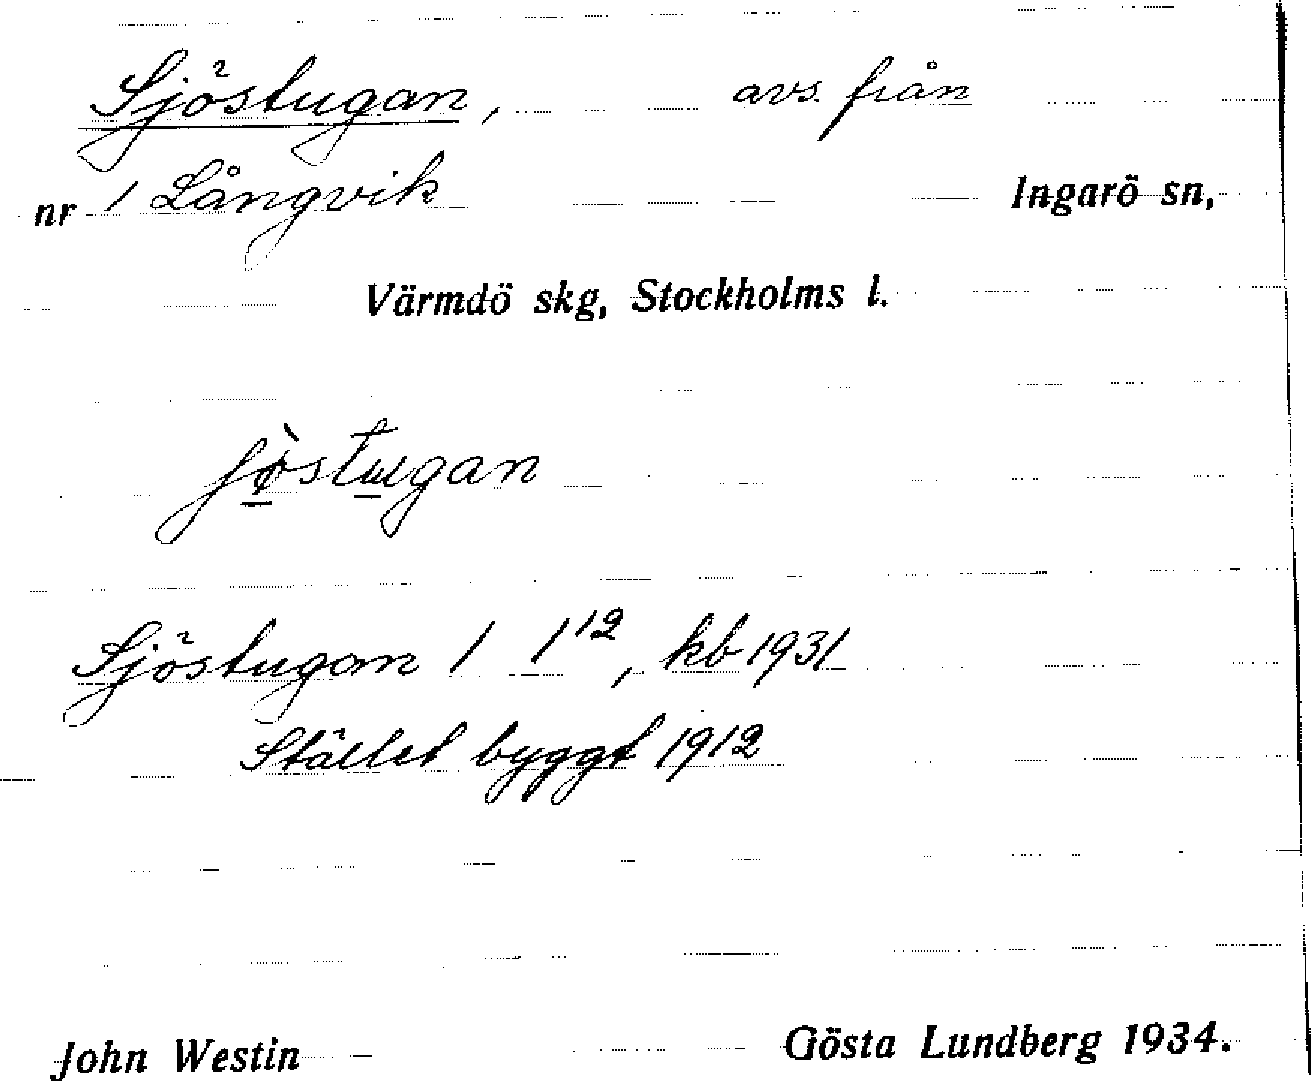 Sjöstugan, avs. från
nr 1 Långvik Ingarö sn,
Värmdö skg, Stockholms l.
Sjöstugan 1 1¹², kb 1931
Stället byggt 1912
John Westin Gösta Lundberg 1934.